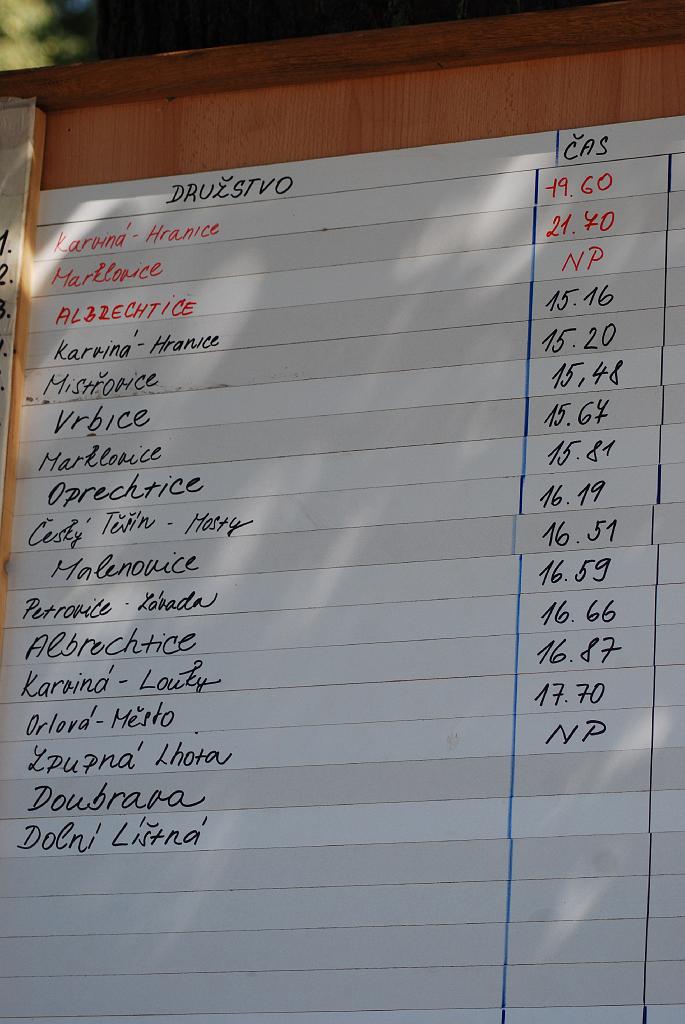 DRUŽSTVO ČAS
1. Karviná - Hranice 19.60
2. Marklovice 21.70
3. ALBRECHTICE NP
Karviná - Hranice 15.16
Mistřovice 15.20
Vrbice 15,48
Marklovice 15.67
Oprechtice 15.81
Český Těšín - Mosty 16.19
Malenovice 16.51
Petrovice - Závada 16.59
Albrechtice 16.66
Karviná - Louky 16.87
Orlová - Město 17.70
Žpupná Lhota NP
Doubrava
Dolní Líštná